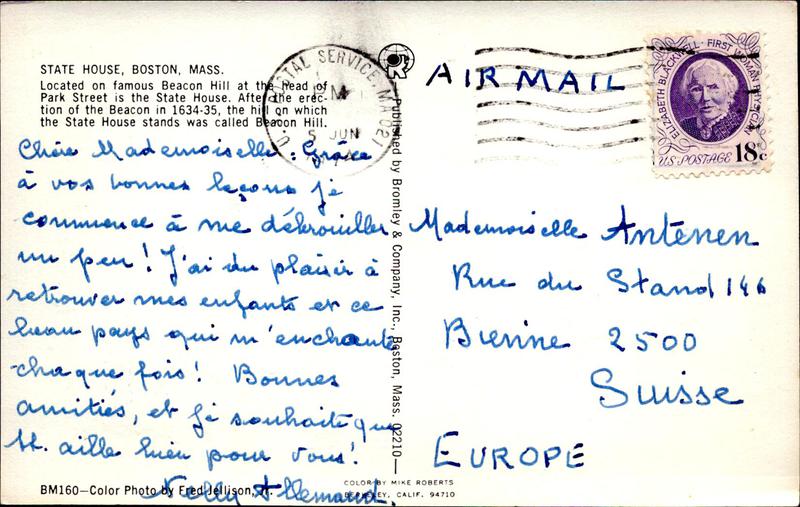 STATE HOUSE, BOSTON, MASS.
Located on famous Beacon Hill at the head of
Park Street is the State House. After the erec-
tion of the Beacon in 1634-35, the hill on which
the State House stands was called Beacon Hill.
Chère Mademoiselle. Grâce
à vos bonnes leçons je
commence à me débrouiller
un peu! J'ai du plaisir à
retrouver mes enfants et ce
beau pays qui m'enchante
chaque fois! Bonnes
amitiés, et je souhaite que
tt. aille bien pour vous!
Nelly Allemand.
BM160—Color Photo by Fred Jellison, Jr.
Published by Bromley & Company, Inc., Boston, Mass. 02210—
COLOR BY MIKE ROBERTS
BERKELEY, CALIF. 94710
U. S. POSTAL SERVICE, MA 021
PM
5 JUN
AIR MAIL
ELIZABETH BLACKWELL · FIRST WOMAN PHYSICIAN
US POSTAGE 18c
Mademoiselle Antenen
Rue du Stand 146
Bienne 2500
Suisse
EUROPE